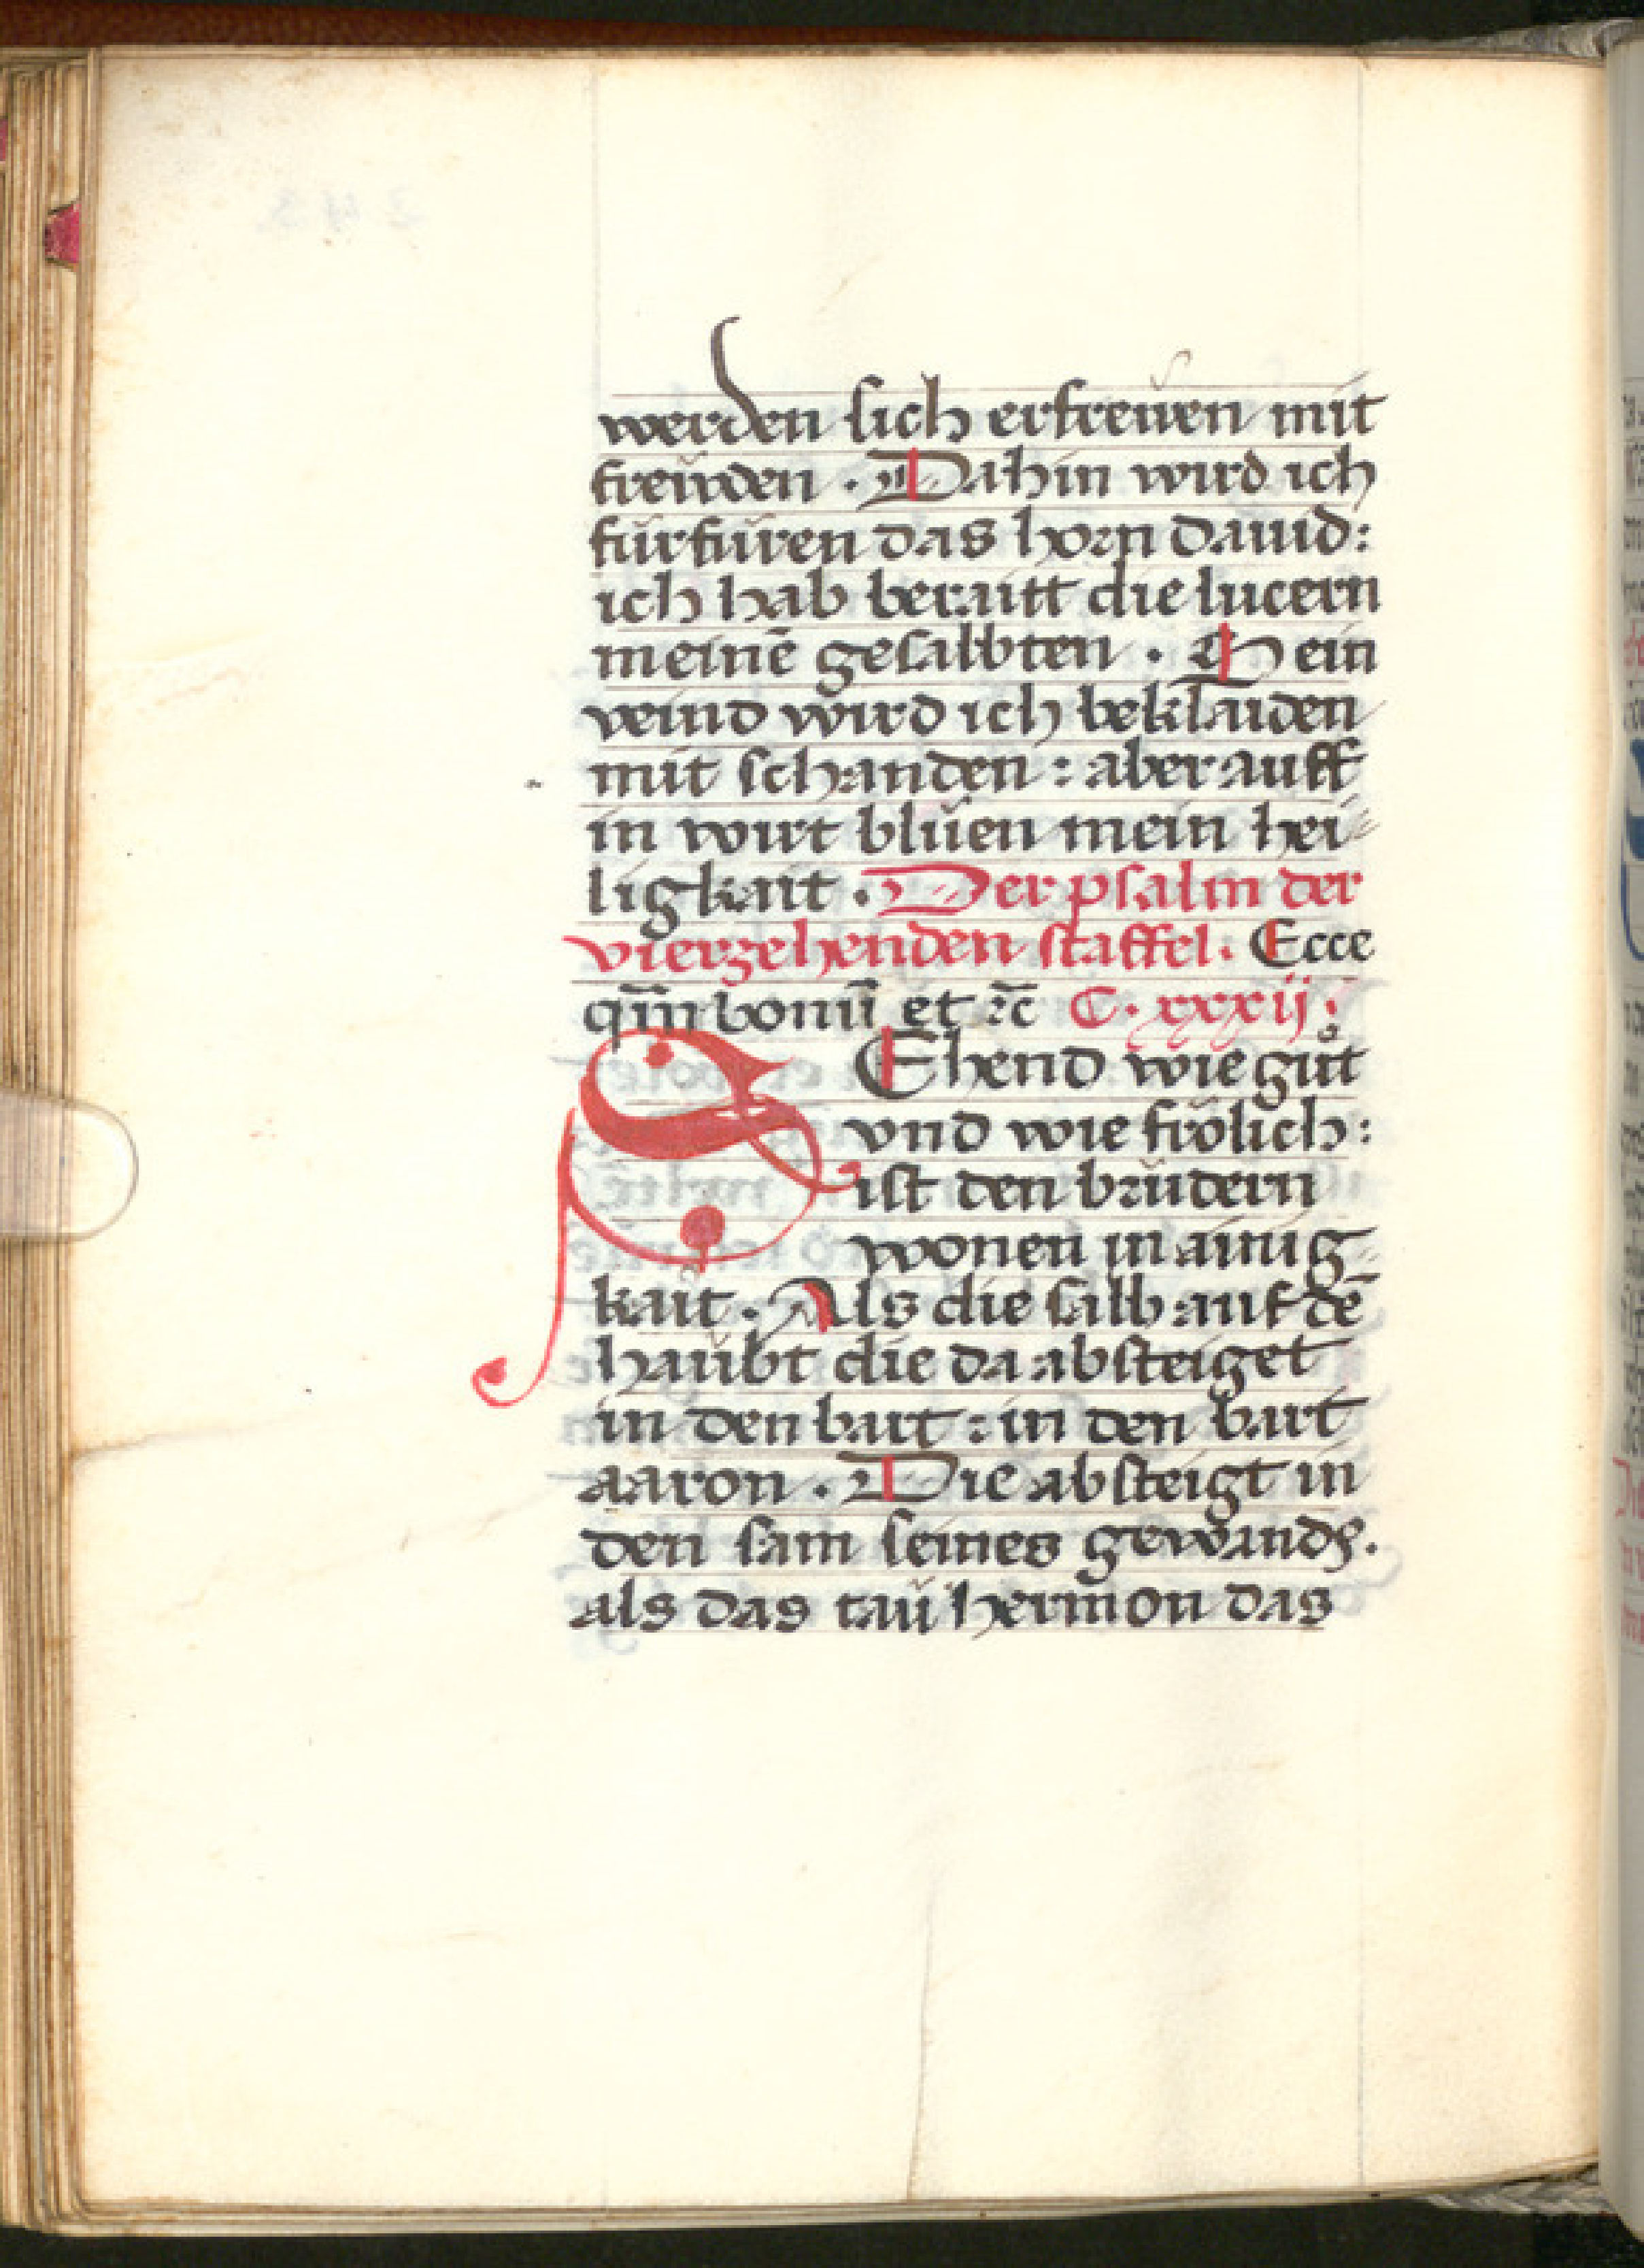 werden sich erfreuen mit
freuden · Dahin wird ich
fürfüren das horn dauid:
ich hab beraitt die lucern
meinē gesalbten · Sein
veind wird ich beklaiden
mit schanden : aber auff
in wirt blüen mein hei-
ligkait · Der psalm der
vierzehenden staffel. Ecce
qm̄ bonū et ⁊c C · xxxij ·
SEhend wie gůt
vnd wie frölich :
ist den brüdern
wonen in ainig-
kait · Als die salb auf dē
haubt die da absteiget
in den bart : in den bart
aaron · Die absteigt in
den sam seines gewands.
als das tau hermon das